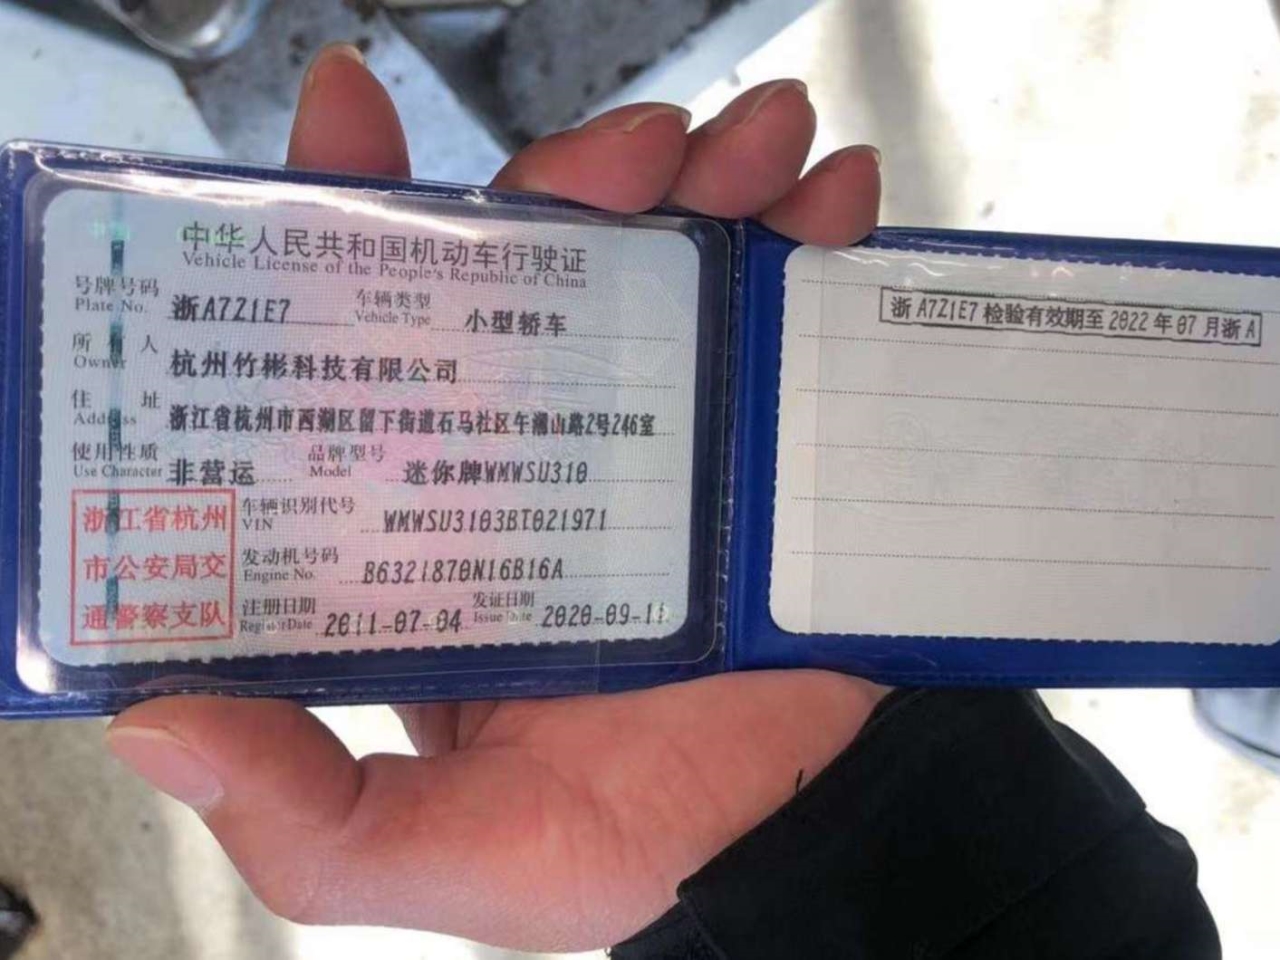 中华人民共和国机动车行驶证
Vehicle License of the People's Republic of China
号牌号码 浙A7Z1E7 车辆类型 小型轿车
Plate No. Vehicle Type
所有人 杭州竹彬科技有限公司
Owner
住址 浙江省杭州市西湖区留下街道石马社区午潮山路2号246室
Address
使用性质 非营运 品牌型号 迷你牌WMWSU310
Use Character Model
浙江省杭州
市公安局交
通警察支队
车辆识别代号 WMWSU3103BT021971
VIN
发动机号码 B6321870N16B16A
Engine No.
注册日期 2011-07-04 发证日期 2020-09-11
Register Date Issue Date
浙A7Z1E7检验有效期至2022年07月浙A